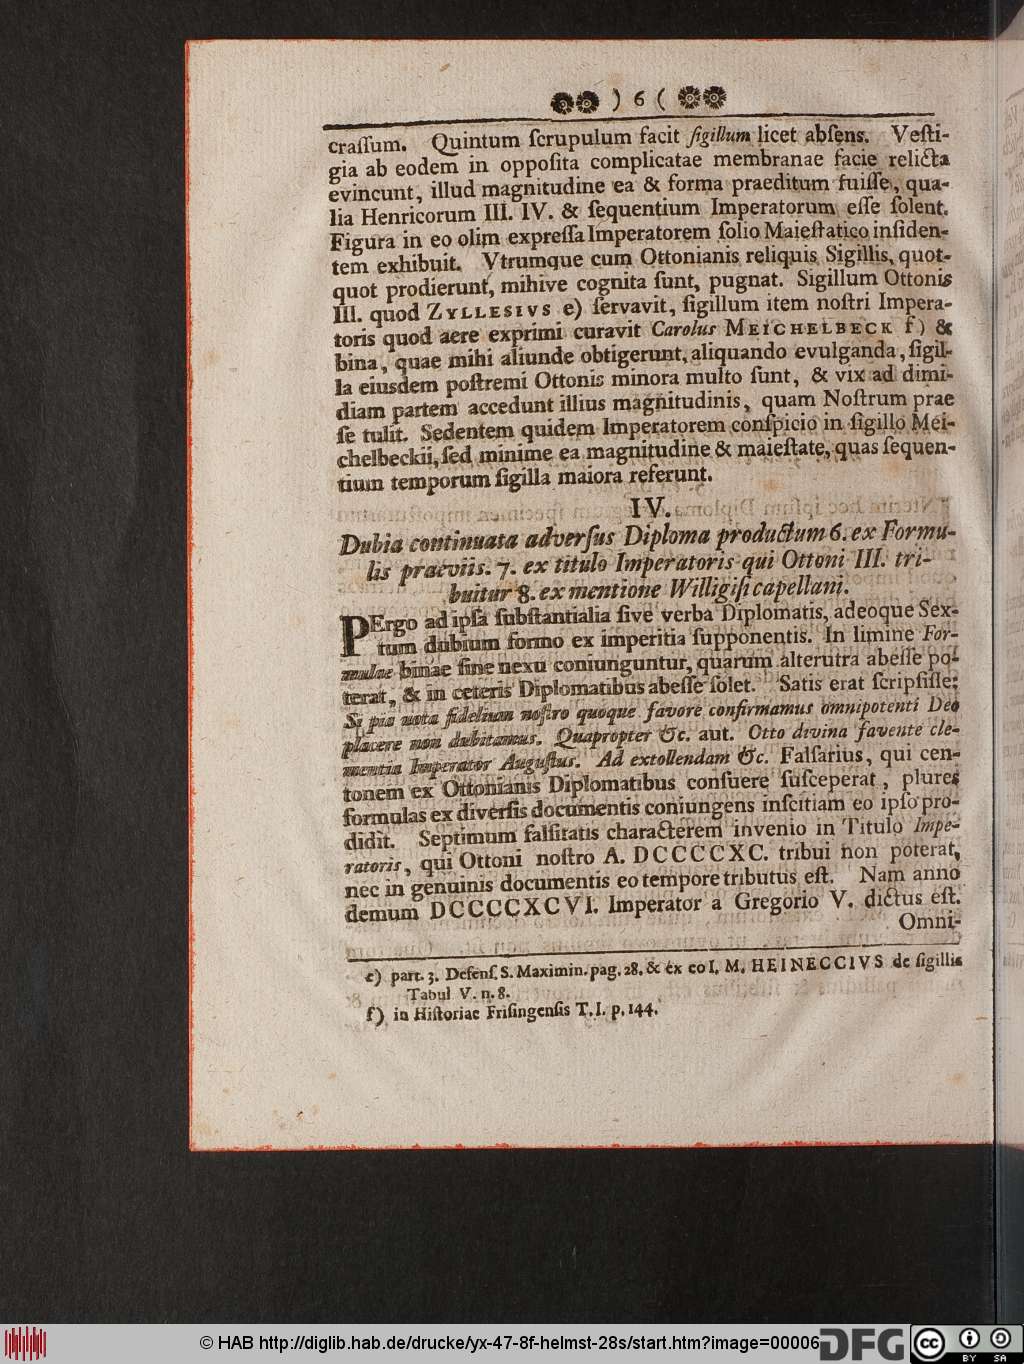 ) 6 (
craſſum. Quintum ſcrupulum facit ſigillum licet abſens. Veſti-
gia ab eodem in oppoſita complicatae membranae facie relicta
evincunt, illud magnitudine ea & forma praeditum fuiſſe, qua-
lia Henricorum III. IV. & ſequentium Imperatorum eſſe ſolent.
Figura in eo olim expreſſa Imperatorem ſolio Maieſtatico inſiden-
tem exhibuit. Vtrumque cum Ottonianis reliquis Sigillis, quot-
quot prodierunt, mihive cognita ſunt, pugnat. Sigillum Ottonis
III. quod ZYLLESIVS e) ſervavit, ſigillum item noſtri Impera-
toris quod aere exprimi curavit Carolus MEICHELBECK f) &
bina, quae mihi aliunde obtigerunt, aliquando evulganda, ſigil-
la eiusdem poſtremi Ottonis minora multo ſunt, & vix ad dimi-
diam partem accedunt illius magnitudinis, quam Noſtrum prae
ſe tulit. Sedentem quidem Imperatorem conſpicio in ſigillo Mei-
chelbeckii, ſed minime ea magnitudine & maieſtate, quas ſequen-
tium temporum ſigilla maiora referunt.
IV.
Dubia continuata adverſus Diploma productum 6. ex Formu-
lis praeviis. 7. ex titulo Imperatoris qui Ottoni III. tri-
buitur 8. ex mentione Willigiſi capellani.
PErgo ad ipſa ſubſtantialia ſive verba Diplomatis, adeoque Sex-
tum dubium formo ex imperitia ſupponentis. In limine For-
mulae binae ſine nexu coniunguntur, quarum alterutra abeſſe po-
terat, & in ceteris Diplomatibus abeſſe ſolet. Satis erat ſcripſiſſe:
Si pia vota fidelium noſtro quoque favore confirmamus omnipotenti Deo
placere non dubitamus. Quapropter &c. aut. Otto divina favente cle-
mentia Imperator Auguſtus. Ad extollendam &c. Falſarius, qui cen-
tonem ex Ottonianis Diplomatibus conſuere ſuſceperat, plures
formulas ex diverſis documentis coniungens inſcitiam eo ipſo pro-
didit. Septimum falſitatis characterem invenio in Titulo Impe-
ratoris, qui Ottoni noſtro A. DCCCCXC. tribui non poterat,
nec in genuinis documentis eo tempore tributus eſt. Nam anno
demum DCCCCXCVI. Imperator a Gregorio V. dictus eſt.
Omni-
e) part. 3. Defenſ. S. Maximin. pag. 28. & ex eo I. M. HEINECCIVS de ſigillis
Tabul V. n. 8.
f) in Hiſtoriae Friſingenſis T. I. p. 144.
© HAB http://diglib.hab.de/drucke/yx-47-8f-helmst-28s/start.htm?image=00006
DFG
cc
BY SA